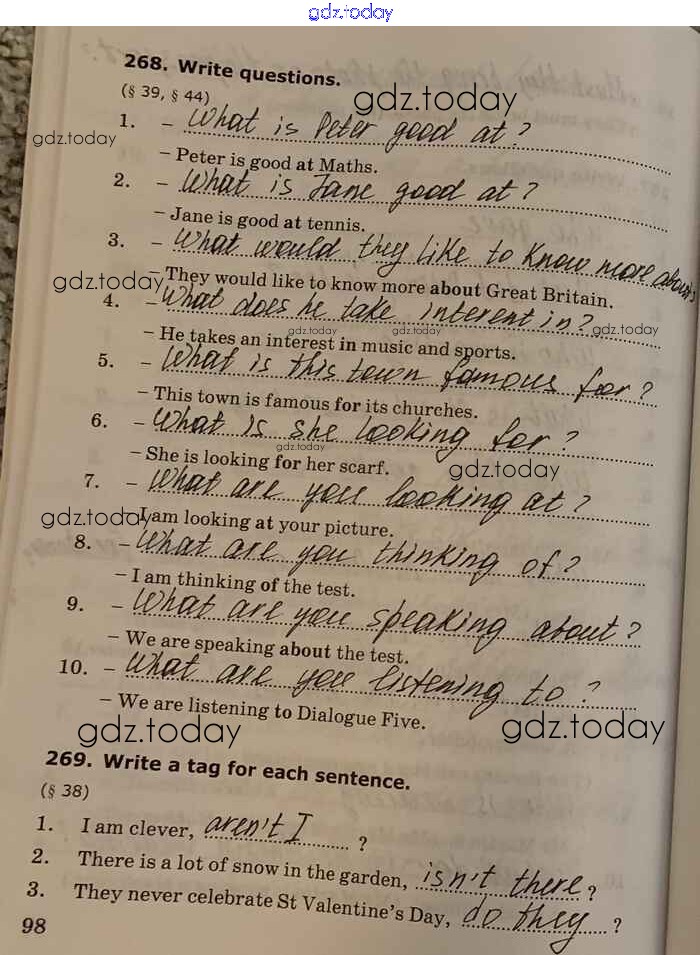 gdz.today
268. Write questions.
(§ 39, § 44)
gdz.today
1. – What is Peter good at?
gdz.today
– Peter is good at Maths.
2. – What is Jane good at?
– Jane is good at tennis.
3. – What would they like to know more about?
– They would like to know more about Great Britain.
gdz.today
4. – What does he take interest in?
gdz.today gdz.today gdz.today
– He takes an interest in music and sports.
5. – What is this town famous for?
– This town is famous for its churches.
6. – What is she looking for?
gdz.today
– She is looking for her scarf.
gdz.today
7. – What are you looking at?
gdz.today
– I am looking at your picture.
8. – What are you thinking of?
– I am thinking of the test.
9. – What are you speaking about?
– We are speaking about the test.
10. – What are you listening to?
– We are listening to Dialogue Five.
gdz.today gdz.today
269. Write a tag for each sentence.
(§ 38)
1. I am clever, aren't I ?
2. There is a lot of snow in the garden, isn't there ?
3. They never celebrate St Valentine's Day, do they ?
98